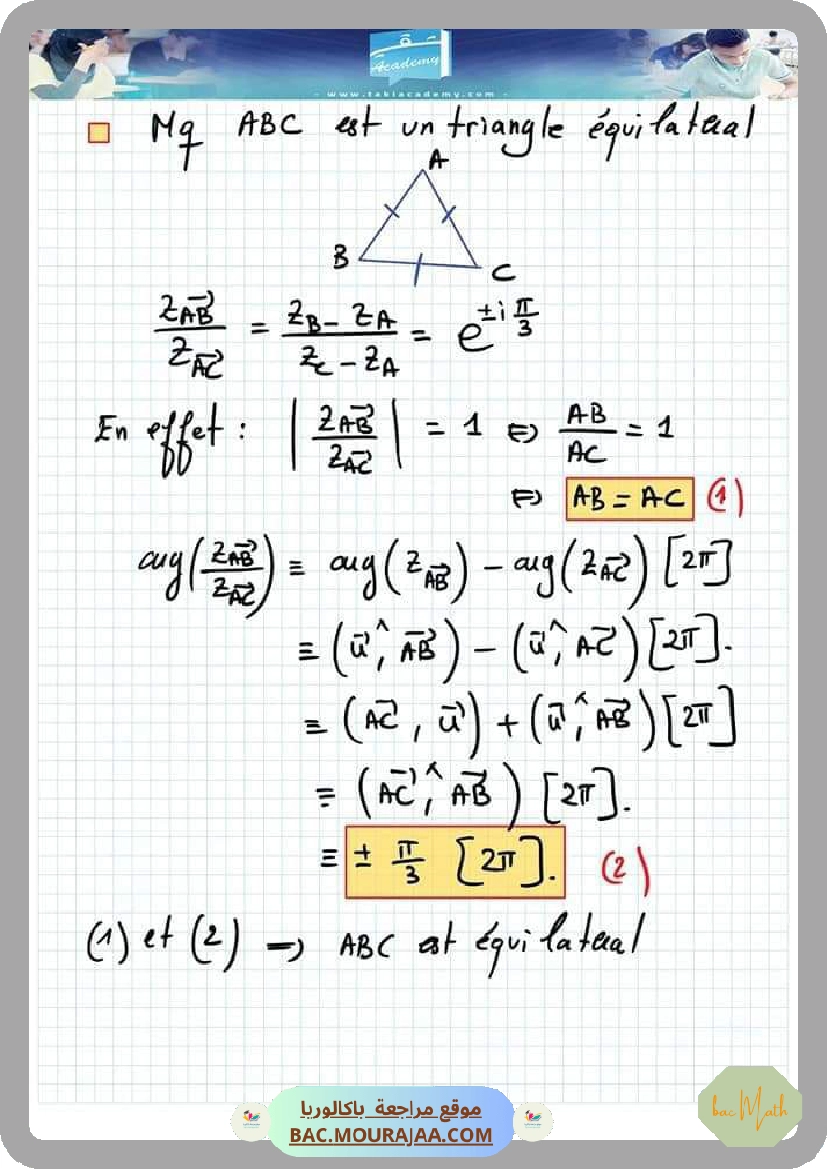 Academy
- www.takiacademy.com -
Mq ABC est un triangle équilatéral
A
B
C
Z_AB⃗ / Z_AC⃗ = (Z_B - Z_A) / (Z_C - Z_A) = e^(±i π/3)
En effet : | Z_AB⃗ / Z_AC⃗ | = 1 ⇔ AB/AC = 1
⇔ AB = AC (1)
arg(Z_AB⃗ / Z_AC⃗) ≡ arg(Z_AB⃗) - arg(Z_AC⃗) [2π]
≡ (u⃗ ^, AB⃗) - (u⃗ ^, AC⃗) [2π].
≡ (AC⃗ , u⃗) + (u⃗ ^, AB⃗) [2π]
≡ (AC⃗ ^, AB⃗) [2π].
≡ ± π/3 [2π]. (2)
(1) et (2) → ABC est équilatéral
موقع مراجعة باكالوريا
BAC.MOURAJAA.COM
bac Math